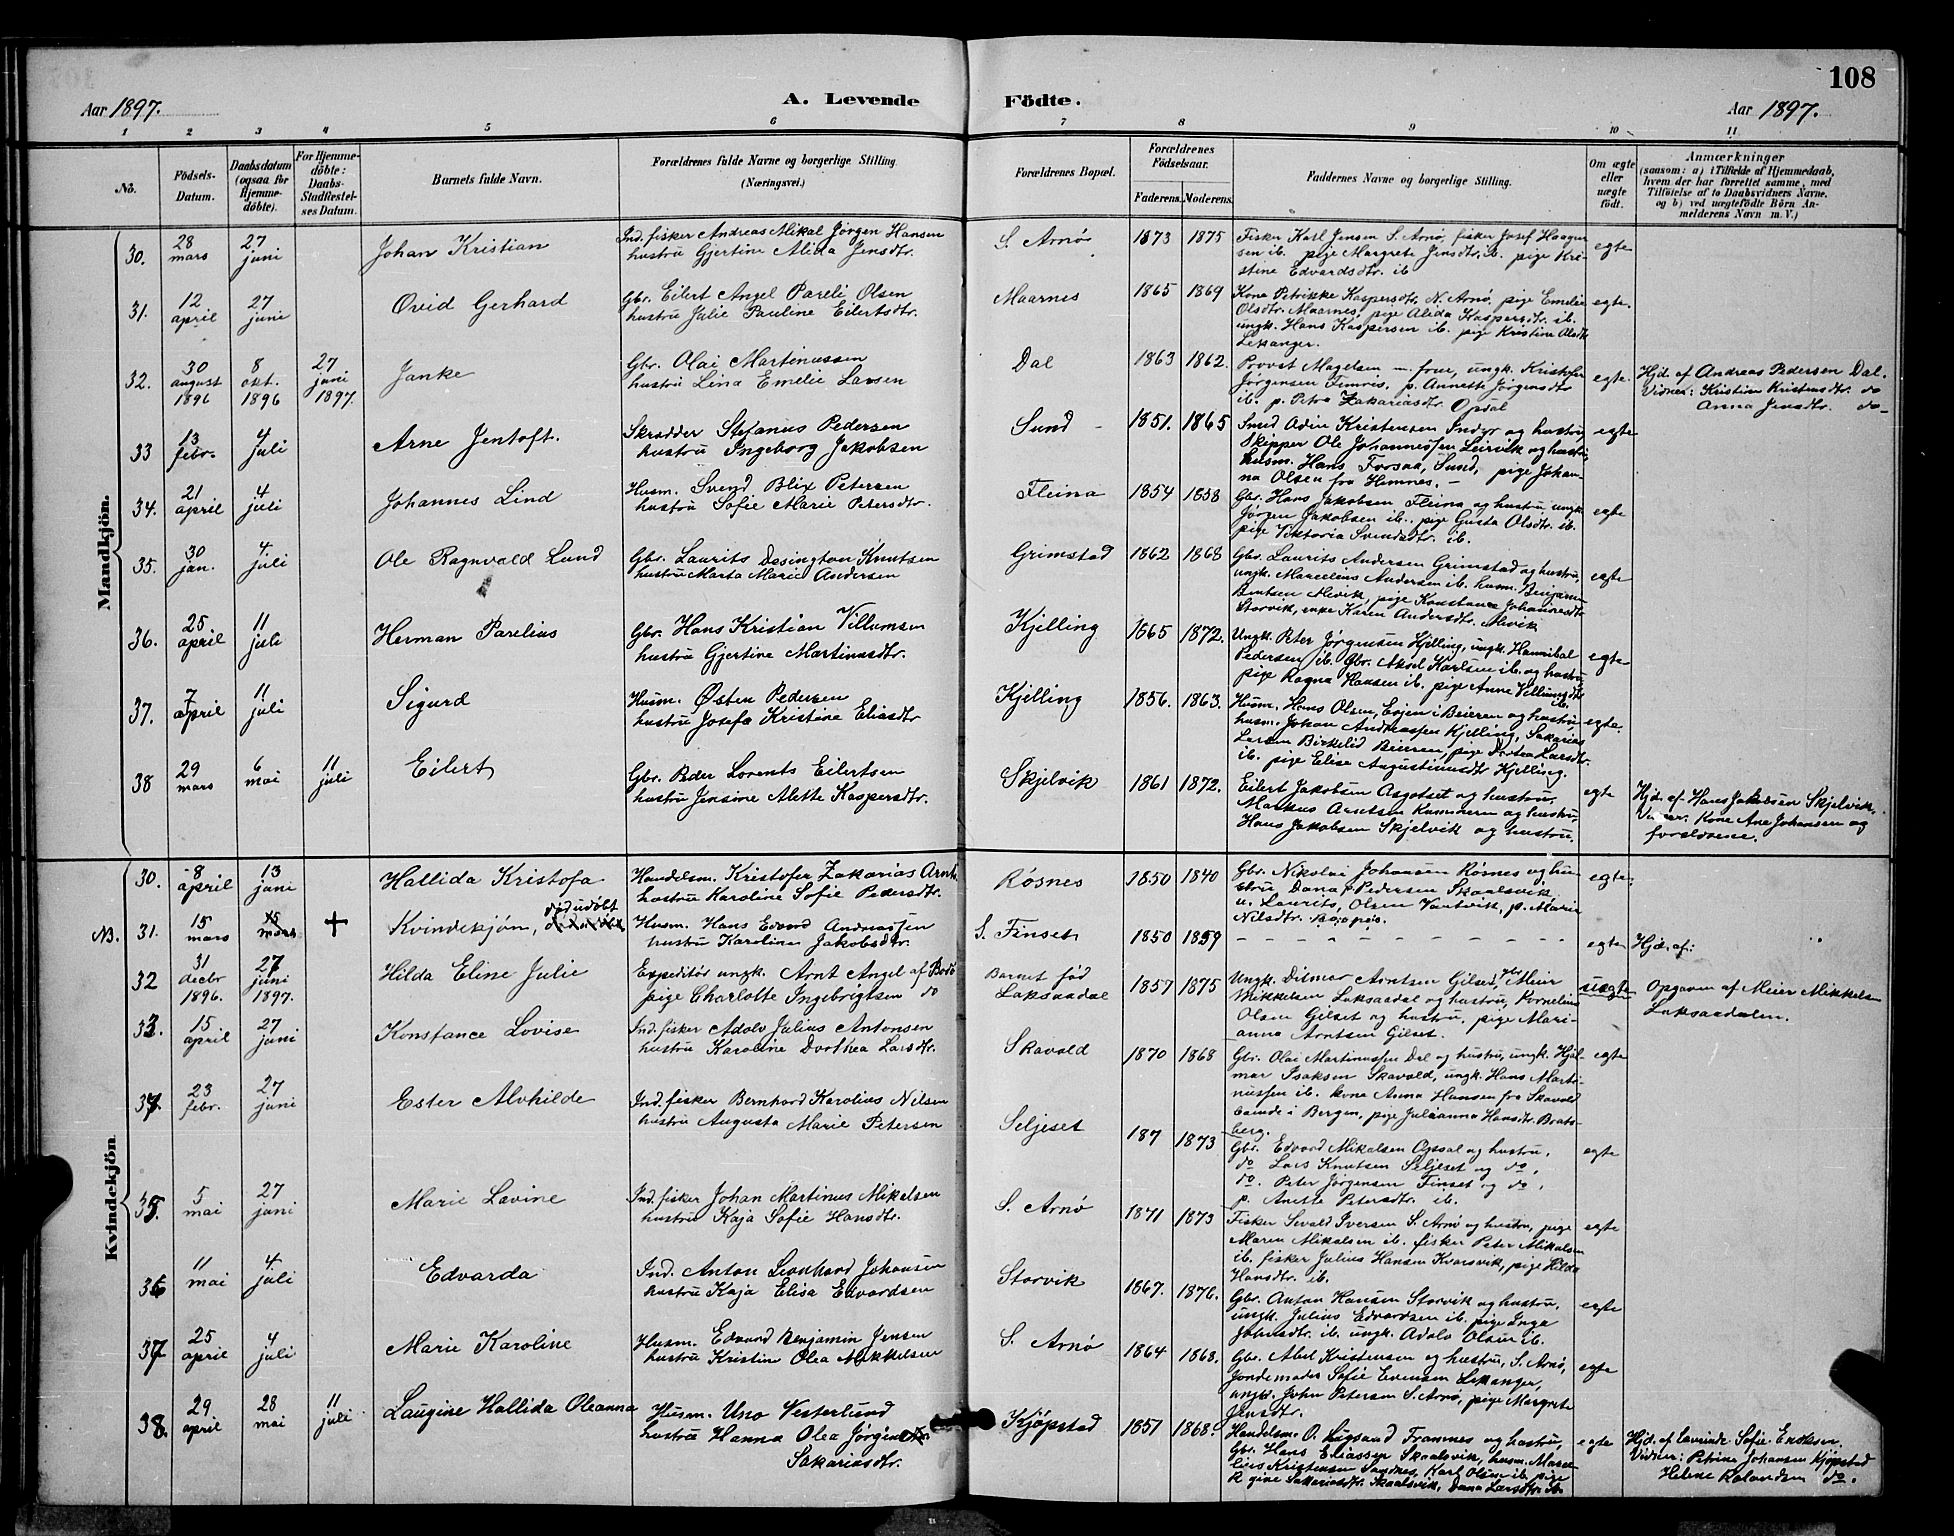 108
Aar 1897.
A. Levende Födte.
Aar 1897.
1 2 3 4 5 6 7 8 9 10 11
No.
Födsels-Datum.
Daabsdatum (ogsaa for Hjemme-døbte).
For Hjemme-döbte: Daabs-Stadfæstel-ses Datum.
Barnets fulde Navn.
Forældrenes fulde Navne og borgerlige Stilling. (Næringsvei.)
Forældrenes Bopæl.
Forældrenes Födselsaar.
Faderens. Moderens.
Faddernes Navne og borgerlige Stilling.
Om ægte eller uægte födt.
Anmærkninger
(saasom: a) i Tilfælde af Hjemmedaab,
hvem der har forrettet samme, med
Tilföielse af to Daabsvidners Navne,
og b) ved uægtefödte Börn An-
melderens Navn m. V.)
Mandkjön.
30. 28 mars 27 juni Johan Kristian
Ind. fisker Andreas Mikal Jørgen Hansen
hustru Gjertine Alida Jensdtr.
S. Arnø 1873 1875
Fisker Karl Jensen S. Arnø, fisker Josef Haagen
sen ib. pige Margrete Jensdtr. ib. pige Kri-
stine Edvardsdtr. ib
egte
31. 12 april 27 juni Ovid Gerhard
Gbr. Eilert Angel Pareli Olsen
hustru Julie Pauline Eilertsdtr.
Maarnes 1865 1869
Kone Petrikke Kaspersdtr. N. Arnø, pige Emelie
Olsdtr. Maarnes, pige Alida Kaspersdtr. ib.
ungk. Hans Kaspersen ib. pige Kristine Olsdtr
Lekanger.
egte.
32. 30 august 1896 8 okt. 1896 27 juni 1897. Janke
Gbr. Olai Martinussen
hustru Lina Emelie Larsen
Dal 1863 1862.
Provst Magelsen — frue, ungk. Kristofer
Jørgensen Femris, p. Annette Jørgensdtr
ib. p. Petra Zakariasdtr. Opsal
egte.
Hjd. af Andreas Pedersen Dal.
Vidner: Kristian Kristensdtr. do
Anna Jensdtr. do
33 13 febr. 4 juli Arne Jentoft.
Skrædder Stefanus Pedersen
hustru Ingeborg Jakobsen
Sund 1851. 1865
Smed Adin Kristensen Indyr og hustru,
Skipper Ole Johannessen Leirvik og hustru
husm. Hans Forsaa, Sund, pige Johan-
na Olsen fra Hemnes. –
egte
34. 21 april 4 juli Johannes Lind
Husm. Svend Blix Petersen
hustru Sofie Marie Petersdtr.
Fleina 1854 1858
Gbr. Hans Jakobsen Fleina og hustru, ungk
Jørgen Jakobsen ib., pige Gusta Olsdtr. ib.
pige Viktoria Svendsdtr. ib.
egte
35. 30 jan. 4 juli Ole Ragnvald Lund
Gbr. Laurits Desington Knutsen
hustru Marta Marie Andersen
Grimstad 1862 1868
Gbr. Laurits Andersen Grimstad og hustru,
ungk. Marcelius Andersen ib. husm. Benjamin
Bentsen Alvik, pige Konstance Johannesdtr
Storvik, enke Karen Andersdtr. Alvik
egte
36. 25 april 11 juli Herman Parelius
Gbr. Hans Kristian Villumsen
hustru Gjertine Martinusdtr.
Kjelling 1865 1872.
Ungk. Peter Jørgensen Kjelling, ungk. Hannibal
Pedersen ib. Gbr. Aksel Karlsen ib. og hustru
pige Ragna Hansen ib. pige Anne Villumsdtr
ib.
egte
37. 7 april 11 juli Sigurd
Husm. Østen Pedersen
hustru Josefa Kristine Eliasdtr
Kjelling 1856. 1863.
Husm. Hans Olsen, Evjen i Beieren og hustru
husm. Johan Andreassen Kjelling, Sakarias
Larsen Birkelid Beieren, pige Dortea Larsdtr.
ib. pige Elise Augustinusdtr Kjelling.
egte.
38 29 mars 6 mai 11 juli Eilert
Gbr. Peder Lorents Eilertsen
hustru Jensine Alette Kaspersdtr.
Skjelvik 1861 1872.
Eilert Jakobsen Asgotset og hustru,
Markus Arntsen og hustru,
Hans Jakobsen Skjelvik og hustru.
egte
Hjd. af Hans Jakobsen Skjelvik.
Vidner. Kone Ane Johansen og
forældrene.
Kvindekjön.
30. 8 april 13 juni Hallida Kristofa
Handelsm. Kristofer Zakarias Arntz
hustru Karoline Sofie Pedersdtr.
Røsnes 1850 1840
Gbr. Nikolai Johansen Røsnes og hu-
stru Dana Pedersen Skaalsvik
u. Laurits Olsen Vantvik, p. Marie
Nilsdtr.
egte.
NB. 31. 15 mars 15 mars + Kvindekjøn, død udøbt
Husm. Hans Edvard Andreassen
hustru Karoline Jakobsdtr.
S. Finset 1850 1859
– – – – – – – –
egte Hjd. af:
32 31 decbr 1896. 27 juni 1897. Hilda Eline Julie
Expeditør ungk. Arnt Angel af Bodø
pige Charlotte Ingebrigtsen do
Barnet fød
Laksaadal 1857 1875
Ungk. Ditmar Arntsen Gilset, gbr Meier
Mikkelsen Laksaadal og hustru, Kornelius
Olsen Gilset og hustru, pige Mari-
anna Arntsen Gilset.
uegte
Opgaven af Meier Mikkelsen
Laksaadalen.
33. 15 april 27 juni Konstance Lovise
Ind. fisker Adolv Julius Antonsen
hustru Karoline Dorthea Larsdtr.
Skavold 1870 1868
Gbr. Olai Martinussen Dal og hustru, ungk. Hjal-
mar Isaksen Skavold, ungk. Hans Marti-
nussen ib. kone Anna Hansen fra Skavold
boende i Bergen, pige Julianna Hansdtr. Brats-
berg.
egte
34. 23 febr. 27 juni Ester Alvhilde
Ind. fisker Bernhard Karolius Nilsen
hustru Augusta Marie Petersen
Seljeset 187 1873
Gbr. Edvard Mikalsen Opsal og hustru,
do. Lars Knutsen Seljeset og do,
do. Peter Jørgensen Finset og do,
p. Anette Petersdtr. ib.
egte
35. 5 mai 27 juni Marie Lovine
Ind. fisker Johan Martinus Mikalsen
hustru Kaja Sofie Hansdtr.
S. Arnø 1871 1873
Fisker Sevald Iversen S. Arnø og hustru, pige
Maren Mikalsen ib. fisker Peter Mikalsen
ib. fisker Julius Hansen Kvarsvik, pige Hilda
Hansdtr. ib.
egte
36 11 mai 4 juli Edvarda
Ind. Anton Leonhard Johansen
hustru Kaja Elisa Edvardsen
Storvik 1867. 1876.
Gbr. Anton Hansen Storvik og hustru,
ungk. Julius Edvardsen ib. pige Inga
Johnsdtr. ib. ungk. Adolv Olsen ib.
egte
37 25 april 4 juli Marie Karoline
Husm. Edvard Benjamin Jensen
hustru Kristine Olea Mikkelsen
S. Arnø 1864 1868.
Gbr. Abel Kristensen og hustru, S. Arnø,
Jordemoder Sofie Evensen Lekanger,
ungk. John Petersen S. Arnø, pige Margrete
Jensdtr.
egte
38. 29 april 28 mai 11 juli Laugine Hallida Oleanna
Husm. Uno Vesterlund
hustru Hanna Olea
Sakariasdtr.
Kjøpstad 1857 1868.
Handelsm. O. Lugsand Framnes og hustru,
Gbr. Hans Eliassen Skaalsvik, husm. Marse-
lius Kristensen Sandnes, Karl Olsen ib. pige
Sakariasdtr. Skaalsvik, Dana Larsdtr. ib.
egte
Hjd. af Lavrinde Sofie Eriksen.
Vidner: Petrine Johansen Kjøpstad
Helene Rolandsen do.